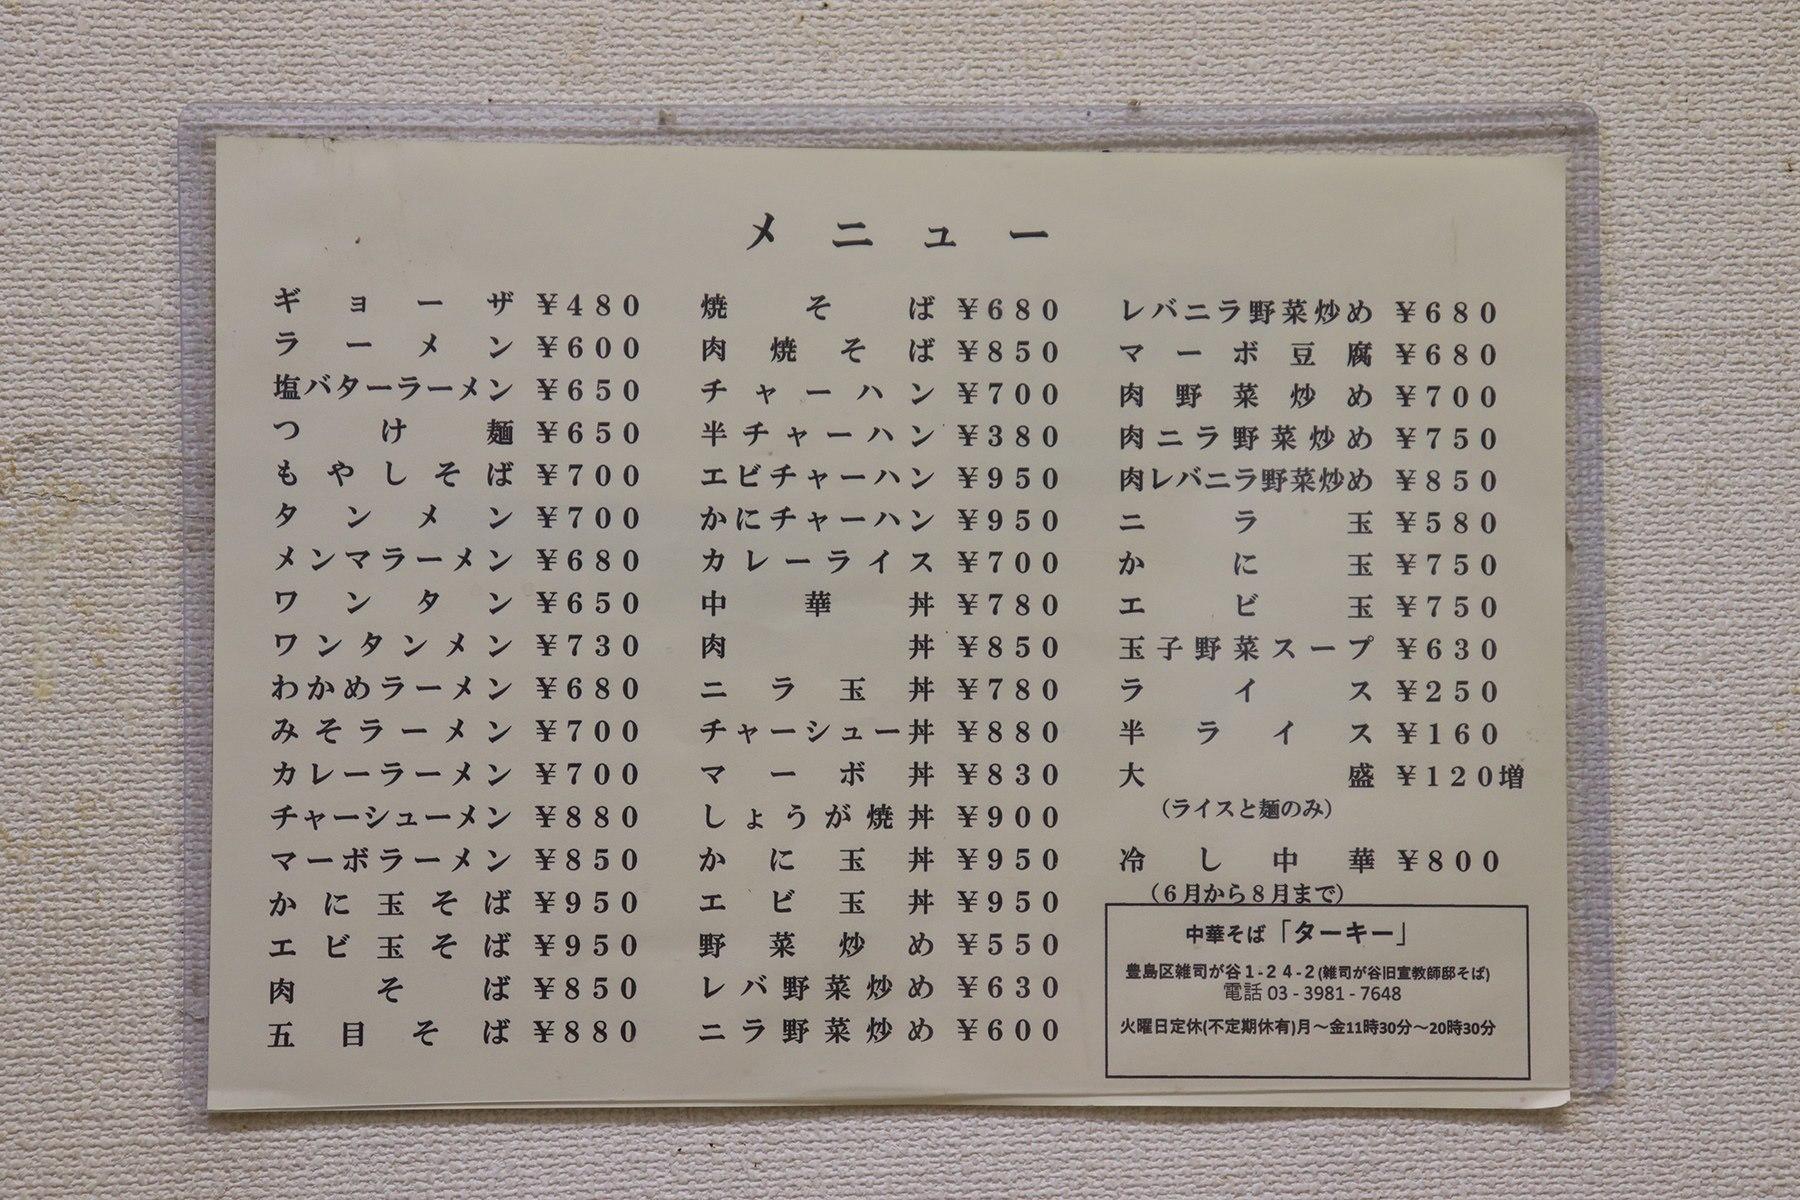 メニュー
ギョーザ ￥480
ラーメン ￥600
塩バターラーメン ￥650
つけ麺 ￥650
もやしそば ￥700
タンメン ￥700
メンマラーメン ￥680
ワンタン ￥650
ワンタンメン ￥730
わかめラーメン ￥680
みそラーメン ￥700
カレーラーメン ￥700
チャーシューメン ￥880
マーボラーメン ￥850
かに玉そば ￥950
エビ玉そば ￥950
肉そば ￥850
五目そば ￥880
焼そば ￥680
肉焼そば ￥850
チャーハン ￥700
半チャーハン ￥380
エビチャーハン ￥950
かにチャーハン ￥950
カレーライス ￥700
中華丼 ￥780
肉丼 ￥850
ニラ玉丼 ￥780
チャーシュー丼 ￥880
マーボ丼 ￥830
しょうが焼丼 ￥900
かに玉丼 ￥950
エビ玉丼 ￥950
野菜炒め ￥550
レバ野菜炒め ￥630
ニラ野菜炒め ￥600
レバニラ野菜炒め ￥680
マーボ豆腐 ￥680
肉野菜炒め ￥700
肉ニラ野菜炒め ￥750
肉レバニラ野菜炒め ￥850
ニラ玉 ￥580
かに玉 ￥750
エビ玉 ￥750
玉子野菜スープ ￥630
ライス ￥250
半ライス ￥160
大盛 ￥120増
（ライスと麺のみ）
冷し中華 ￥800
（6月から8月まで）
中華そば「ターキー」
豊島区雑司が谷1-24-2(雑司が谷旧宣教師邸そば)
電話 03-3981-7648
火曜日定休(不定期休有)月～金11時30分～20時30分